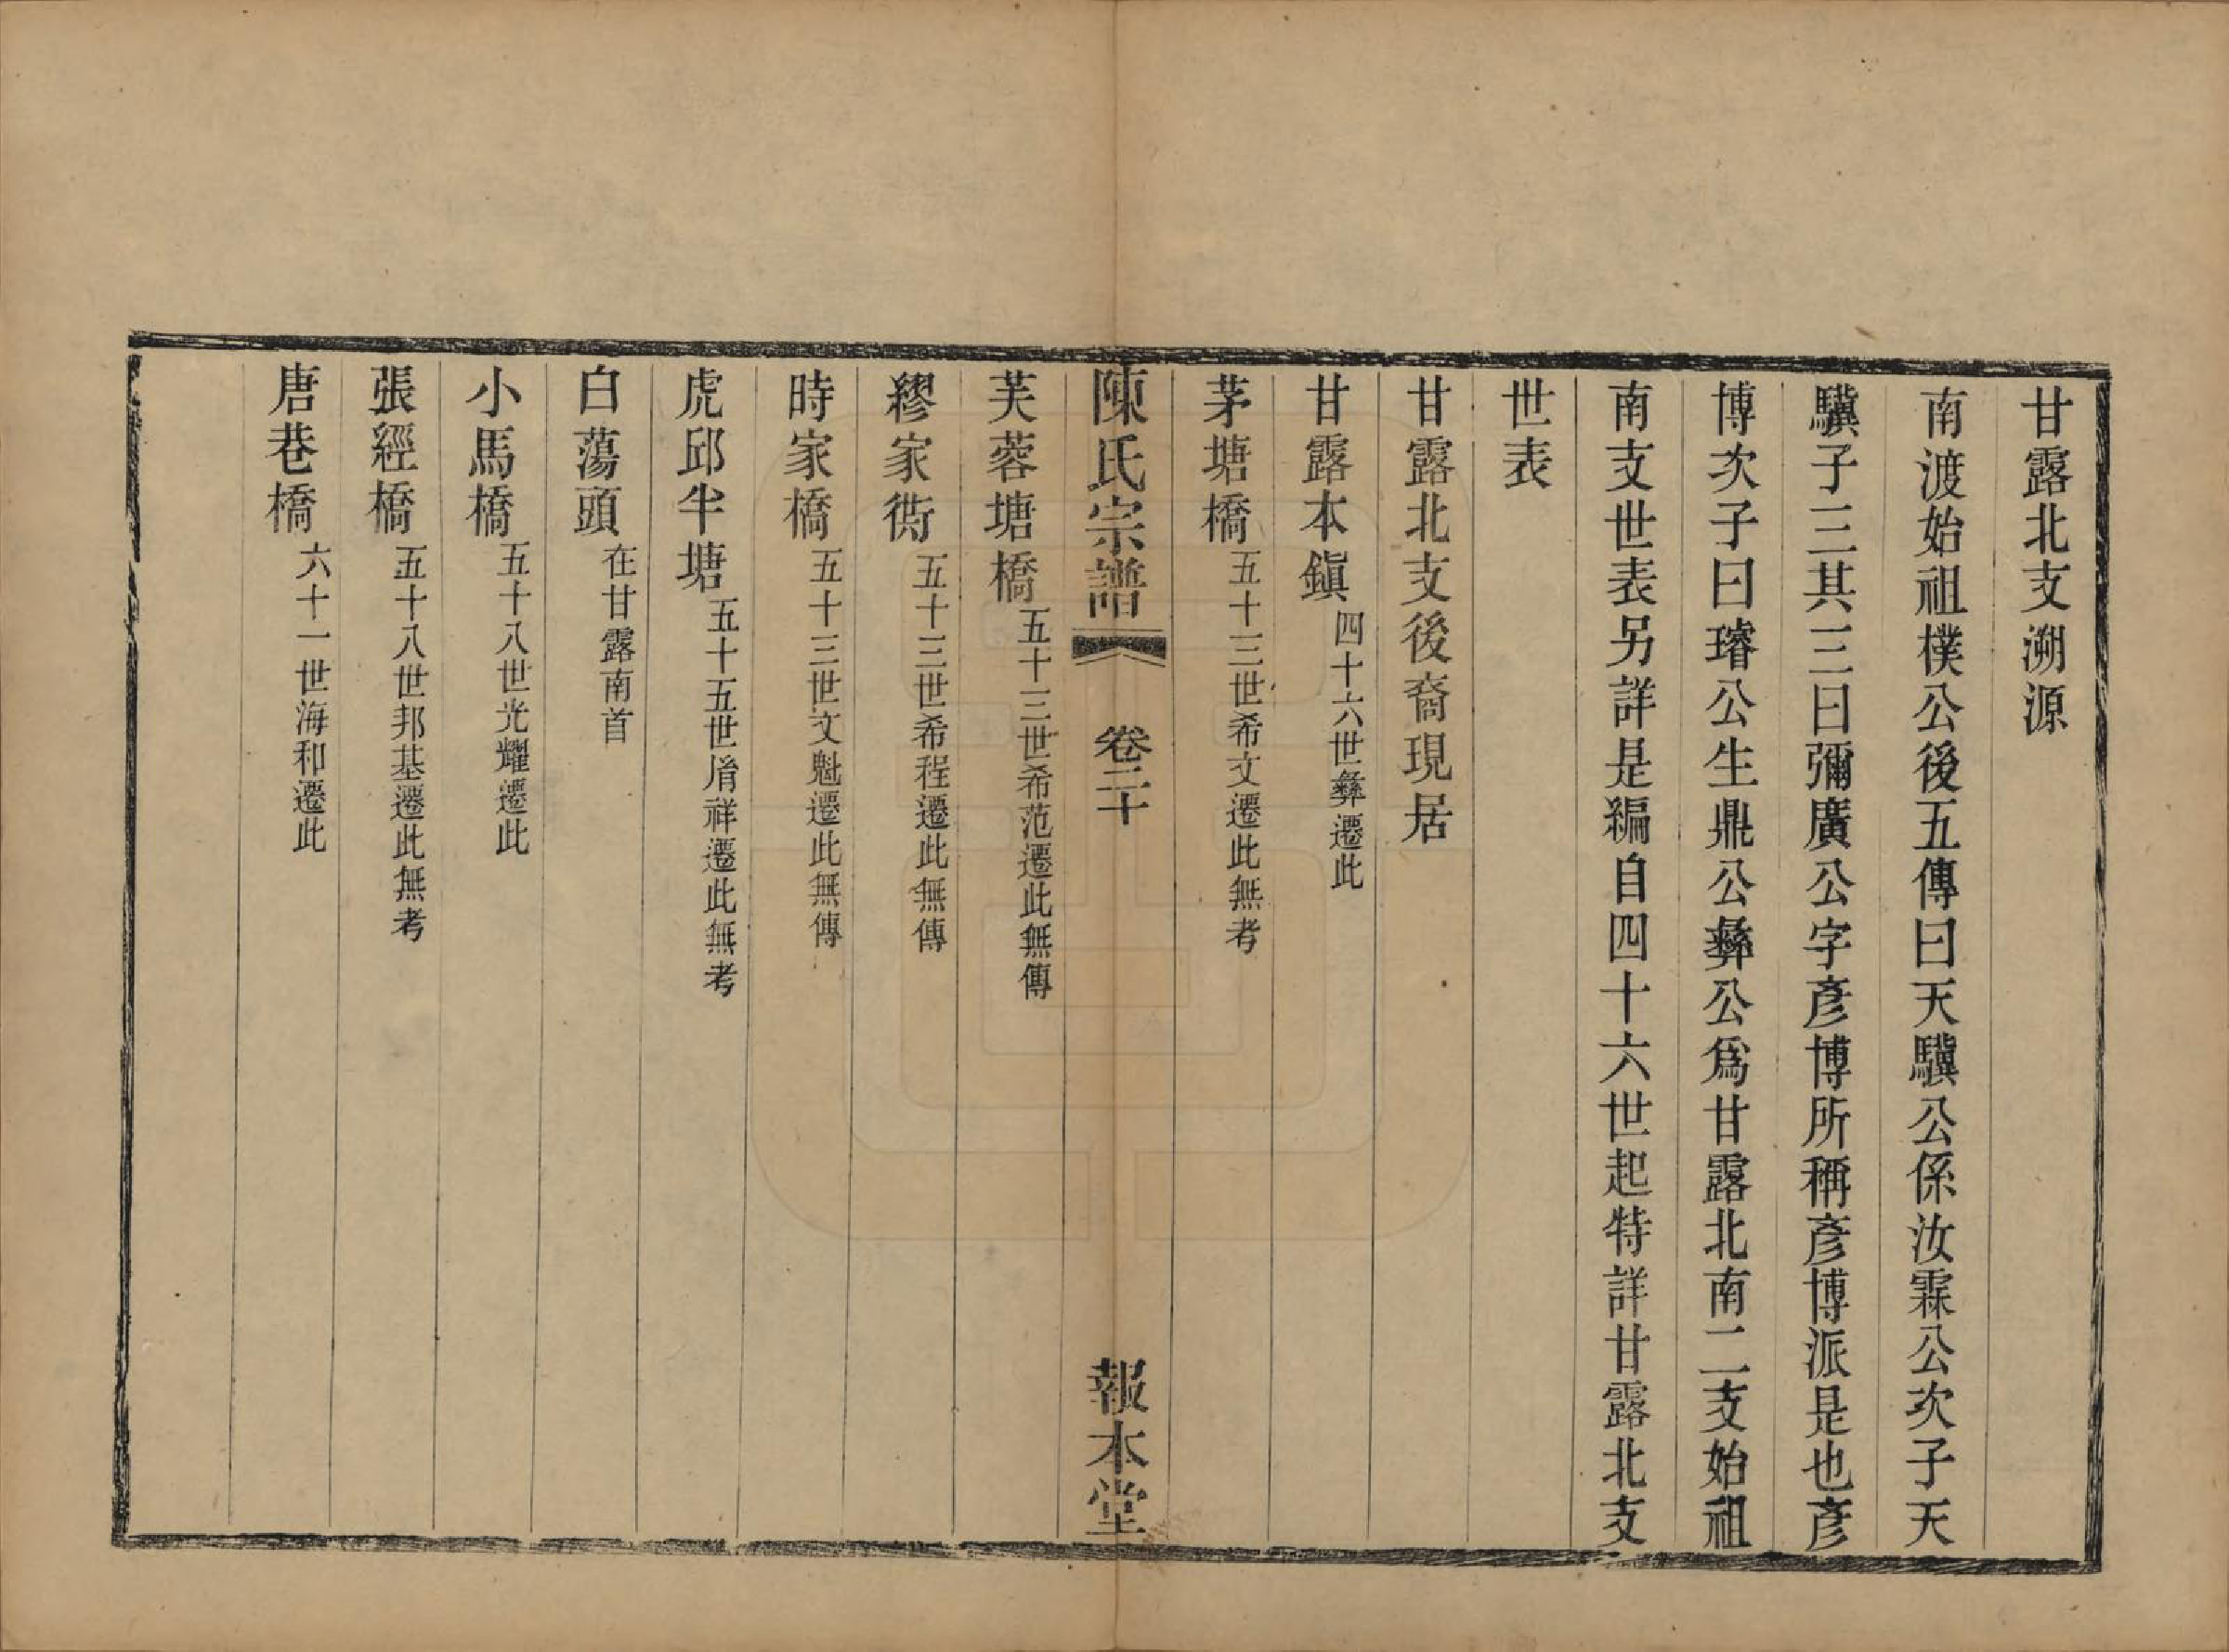 甘露北支溯源
南渡始祖樸公後五傳曰天驥公係汝霖公次子天
驥子三其三曰彌廣公字彥博所稱彥博派是也彥
博次子曰璿公生鼎公彝公爲甘露北南二支始祖
南支世表另詳是編自四十六世起特詳甘露北支
世表
甘露北支後裔現居
甘露本鎭 四十六世彝遷此
茅塘橋 五十三世希文遷此無考
陳氏宗譜 卷二十 報本堂
芙蓉塘橋 五十三世希范遷此無傳
繆家衖 五十三世希程遷此無傳
時家橋 五十三世文魁遷此無傳
虎邱半塘 五十五世脩祥遷此無考
白蕩頭 在甘露南首
小馬橋 五十八世光耀遷此
張經橋 五十八世邦基遷此無考
唐巷橋 六十一世海和遷此